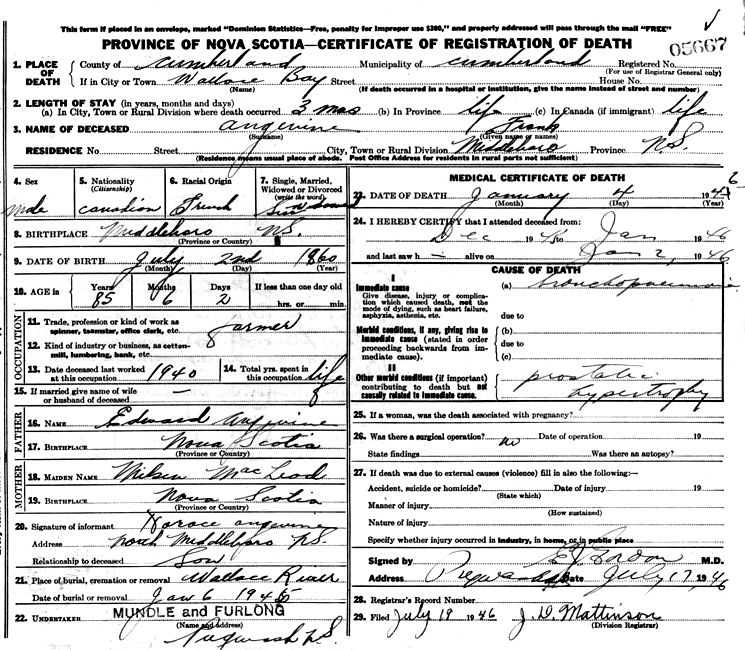 This form if placed in an envelope, marked "Dominion Statistics—Free, penalty for improper use $300," and properly addressed will pass through the mail "FREE"
PROVINCE OF NOVA SCOTIA—CERTIFICATE OF REGISTRATION OF DEATH
05667
1. PLACE OF DEATH { County of Cumberland Municipality of Cumberland Registered No.
(For use of Registrar General only)
If in City or Town Wallace Bay Street House No.
(Name) (If death occurred in a hospital or institution, give the name instead of street and number)
2. LENGTH OF STAY (in years, months and days)
(a) In City, Town or Rural Division where death occurred 3 mos (b) In Province life (c) In Canada (if immigrant) life
3. NAME OF DECEASED Angevine Frank
(Surname) (Given name or names)
RESIDENCE No. Street City, Town or Rural Division Middleboro Province N.S.
(Residence means usual place of abode. Post Office Address for residents in rural parts not sufficient)
4. Sex 5. Nationality (Citizenship) 6. Racial Origin 7. Single, Married, Widowed or Divorced (write the word)
Male Canadian French
8. BIRTHPLACE Middleboro N.S.
(Province or Country)
9. DATE OF BIRTH July 2nd 1860
(Month) (Day) (Year)
10. AGE in Years Months Days If less than one day old
85 6 2 hrs. or min.
OCCUPATION
11. Trade, profession or kind of work as spinner, teamster, office clerk, etc. farmer
12. Kind of industry or business, as cotton-mill, lumbering, bank, etc.
13. Date deceased last worked at this occupation 1940 14. Total yrs. spent in this occupation life
15. If married give name of wife or husband of deceased —
FATHER
16. NAME Edward Angevine
17. BIRTHPLACE Nova Scotia
(Province or Country)
MOTHER
18. MAIDEN NAME MacLeod
19. BIRTHPLACE Nova Scotia
(Province or Country)
20. Signature of informant Horace Angevine
Address North Middleboro N.S.
Relationship to deceased Son
21. Place of burial, cremation or removal Wallace River
Date of burial or removal Jan 6 1945
22. UNDERTAKER MUNDLE and FURLONG
(Name and address)
Pugwash N.S.
MEDICAL CERTIFICATE OF DEATH
23. DATE OF DEATH January 4 1946
(Month) (Day) (Year)
24. I HEREBY CERTIFY that I attended deceased from:
Dec 19 45 to Jan 19 46
and last saw h — alive on Jan 2, 19 46
CAUSE OF DEATH
I
Immediate cause (a) bronchopneumonia
Give disease, injury or complication which caused death, not the mode of dying, such as heart failure, asphyxia, asthenia, etc.
due to
Morbid conditions, if any, giving rise to immediate cause (stated in order proceeding backwards from immediate cause). (b)
due to
(c)
II
Other morbid conditions (if important) contributing to death but not causally related to immediate cause. prostatic hypertrophy
25. If a woman, was the death associated with pregnancy?
26. Was there a surgical operation? no Date of operation 19
State findings Was there an autopsy?
27. If death was due to external causes (violence) fill in also the following:—
Accident, suicide or homicide? Date of injury 19
(State which)
Manner of injury
(How sustained)
Nature of injury
Specify whether injury occurred in industry, in home, or in public place
Signed by Gordon M.D.
Address Pugwash Date July 17 1946
28. Registrar's Record Number
29. Filed July 19 1946 J. D. Mattinson
(Division Registrar)